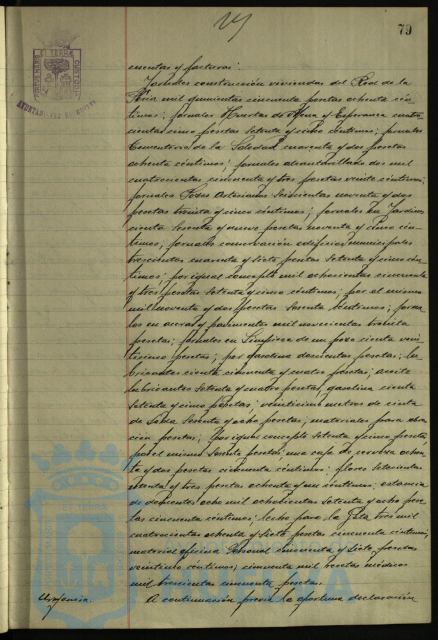 79
AYUNTAMIENTO DE HUELVA
cuentas y facturas:
Jornales construcción viviendas del Real de la
Feria mil quinientas cincuenta pesetas ochenta cén-
timos; jornales Huertas de Mena y Esperanza cuatro-
cientas cinco pesetas setenta y cinco céntimos; jornales
Cementerio de la Soledad cuarenta y dos pesetas
ochenta céntimos; jornales alcantarillado dos mil
cuatrocientas cincuenta y tres pesetas veinte céntimos;
jornales Pozos Artesianos seiscientas noventa y dos
pesetas treinta y cinco céntimos; jornales en Jardines
ciento sesenta y nueve pesetas noventa y cinco cén-
timos; jornales conservación edificios municipales
trescientas cuarenta y siete pesetas setenta y cinco cén-
timos; por igual concepto mil ochocientas cincuenta
y tres pesetas setenta y cinco céntimos; por el mismo
mil noventa y dos pesetas sesenta céntimos; jorna-
les en aceras y pavimentos mil novecientas treinta
pesetas; jornales en limpieza de un pozo ciento vein-
ticinco pesetas; por gasolina doscientas pesetas; lu-
bricantes ciento cincuenta y cuatro pesetas; aceite
lubricantes setenta y cuatro pesetas, gasolina ciento
setenta y cinco pesetas; veinticinco metros de cinta
de seda sesenta y ocho pesetas; materiales para
pesetas; por igual concepto setenta y cinco pesetas,
por el mismo sesenta pesetas; una caja de cerveza ochen-
ta y dos pesetas cincuenta céntimos: flores setecientas
ochenta y tres pesetas ochenta y un céntimos; estancia
de dementes ocho mil ochocientas setenta y ocho pese-
tas cincuenta céntimos; leche para la Gota tres mil
cuatrocientas ochenta y siete pesetas cincuenta céntimos;
material oficina Personal cincuenta y siete pesetas
veinticinco céntimos; cincuenta mil recetas médicos
mil trescientas cincuenta pesetas.
Urgencia. A continuación previa la oportuna declaración